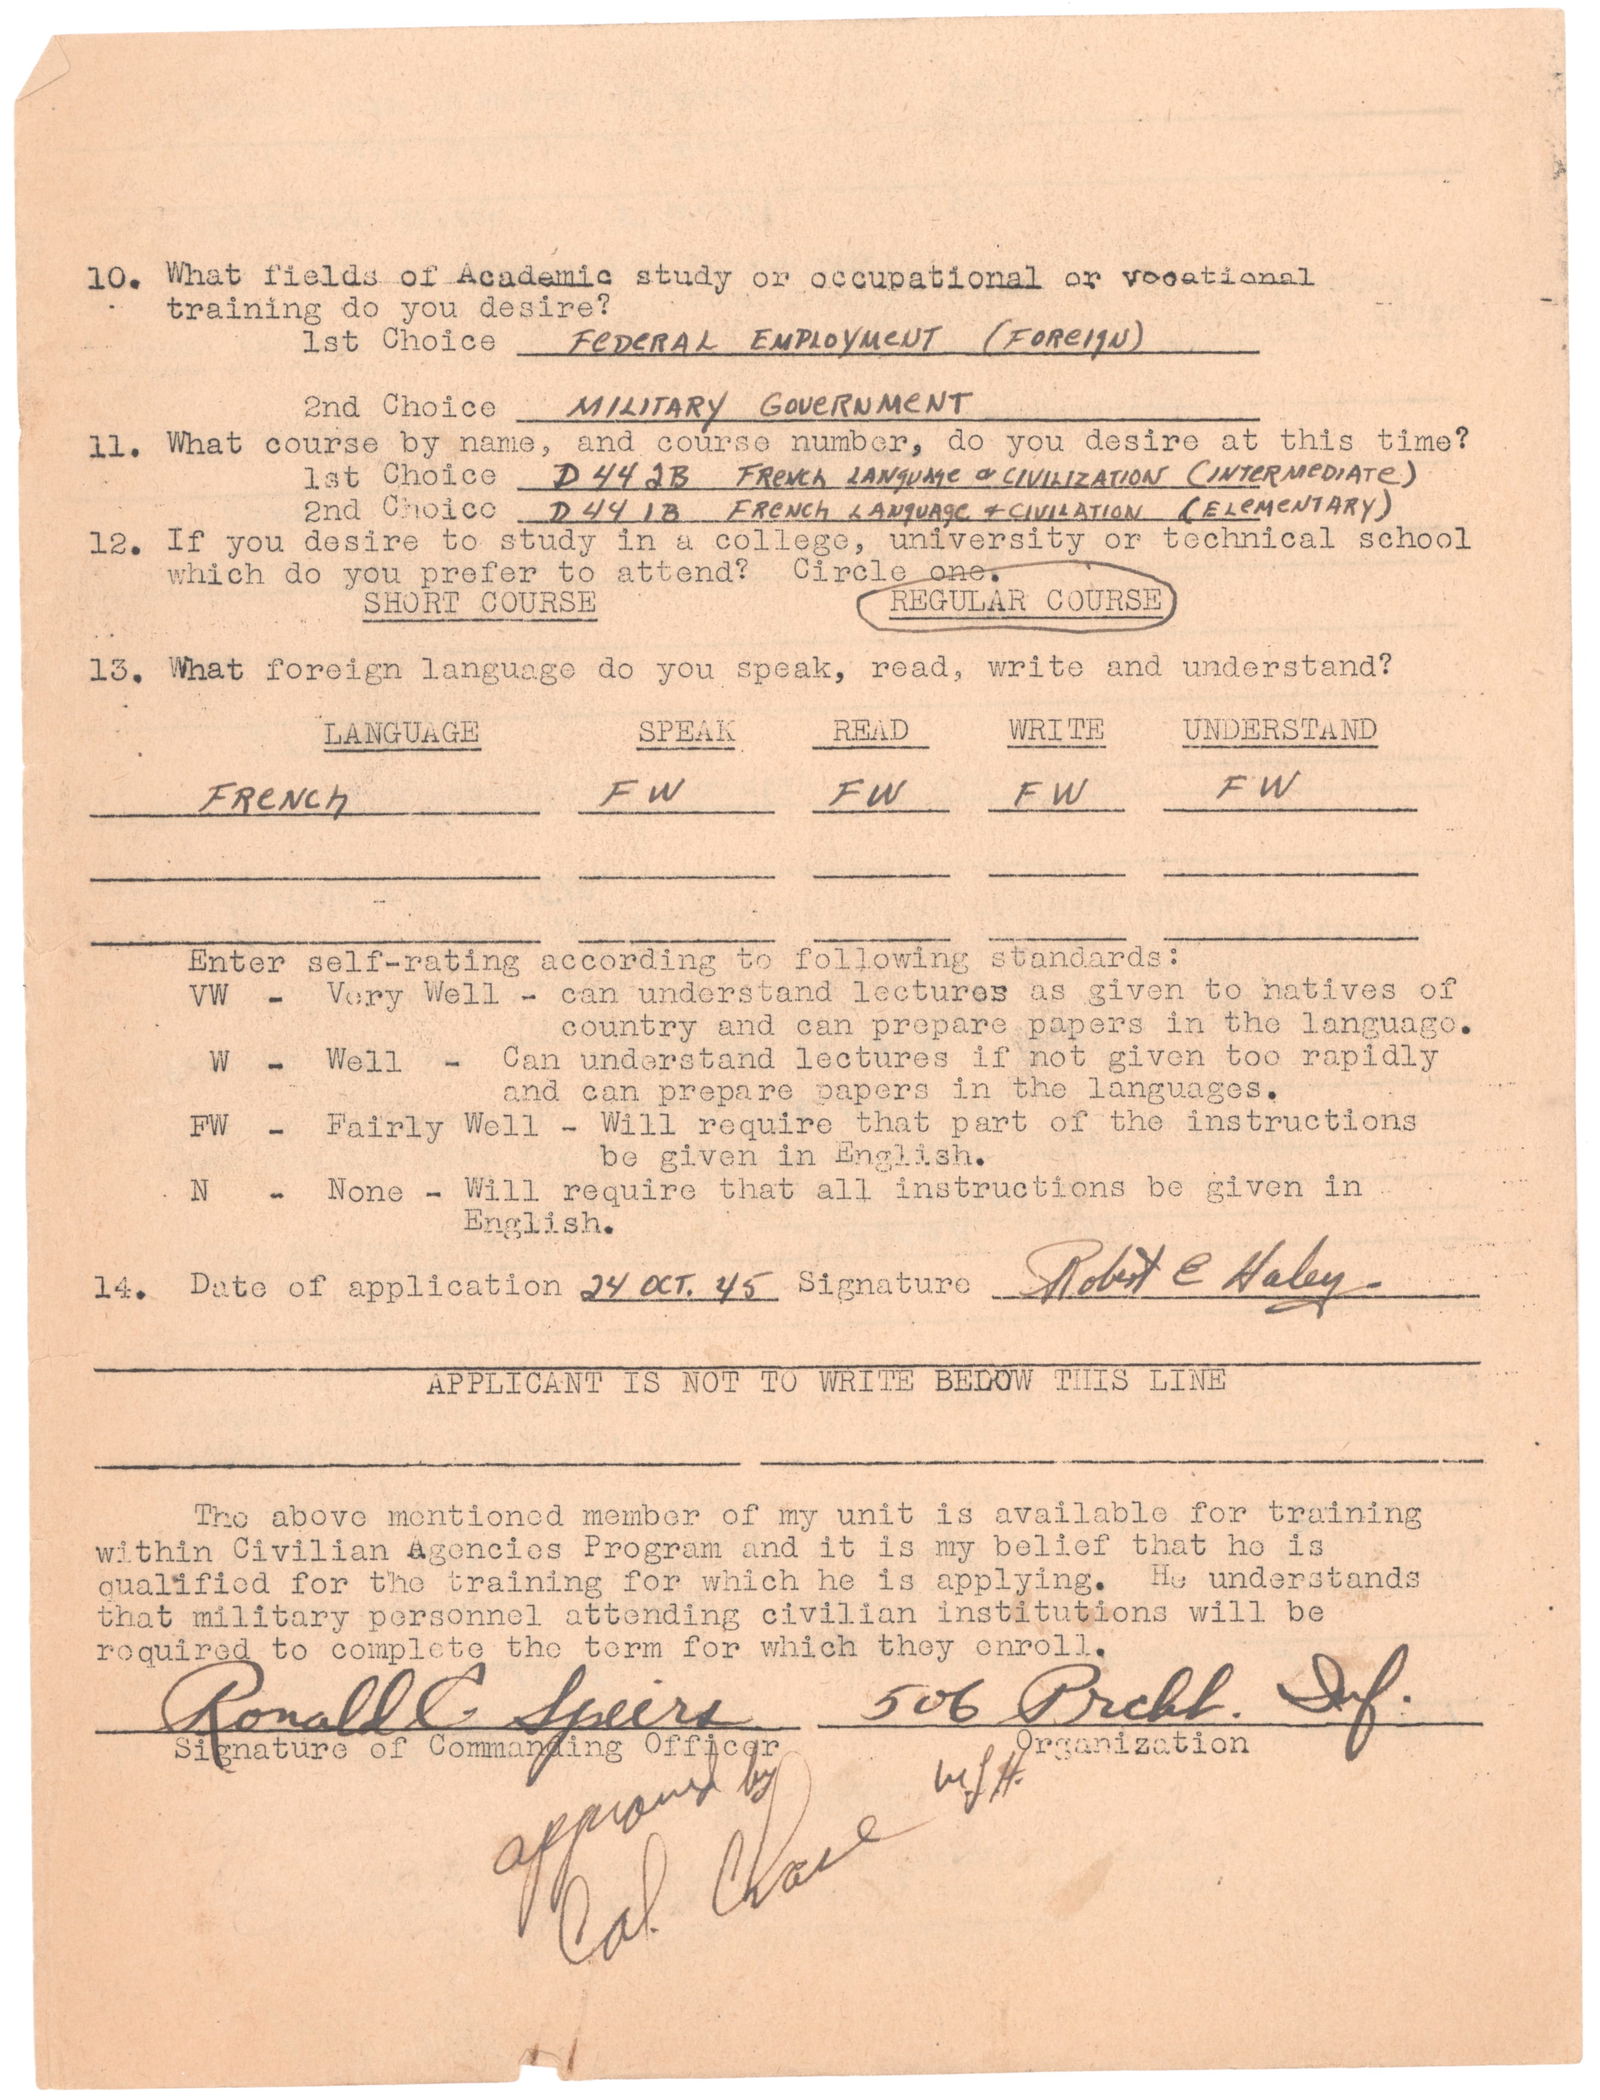 10. What fields of Academic study or occupational or vocational
training do you desire?
1st Choice FEDERAL EMPLOYMENT (FOREIGN)
2nd Choice MILITARY GOVERNMENT
11. What course by name, and course number, do you desire at this time?
1st Choice D 442B FRENCH LANGUAGE & CIVILIZATION (INTERMEDIATE)
2nd Choice D 441B FRENCH LANGUAGE + CIVILATION (ELEMENTARY)
12. If you desire to study in a college, university or technical school
which do you prefer to attend? Circle one.
SHORT COURSE REGULAR COURSE
13. What foreign language do you speak, read, write and understand?
LANGUAGE SPEAK READ WRITE UNDERSTAND
FRENCH FW FW FW FW
Enter self-rating according to following standards:
VW - Very Well - can understand lectures as given to natives of
country and can prepare papers in the language.
W - Well - Can understand lectures if not given too rapidly
and can prepare papers in the languages.
FW - Fairly Well - Will require that part of the instructions
be given in English.
N - None - Will require that all instructions be given in
English.
14. Date of application 24 OCT. 45 Signature Robert E Haley
APPLICANT IS NOT TO WRITE BELOW THIS LINE
The above mentioned member of my unit is available for training
within Civilian Agencies Program and it is my belief that he is
qualified for the training for which he is applying. He understands
that military personnel attending civilian institutions will be
required to complete the term for which they enroll.
Ronald C. Speirs 506 Prcht. Inf.
Signature of Commanding Officer Organization
approved by
Col. Chase